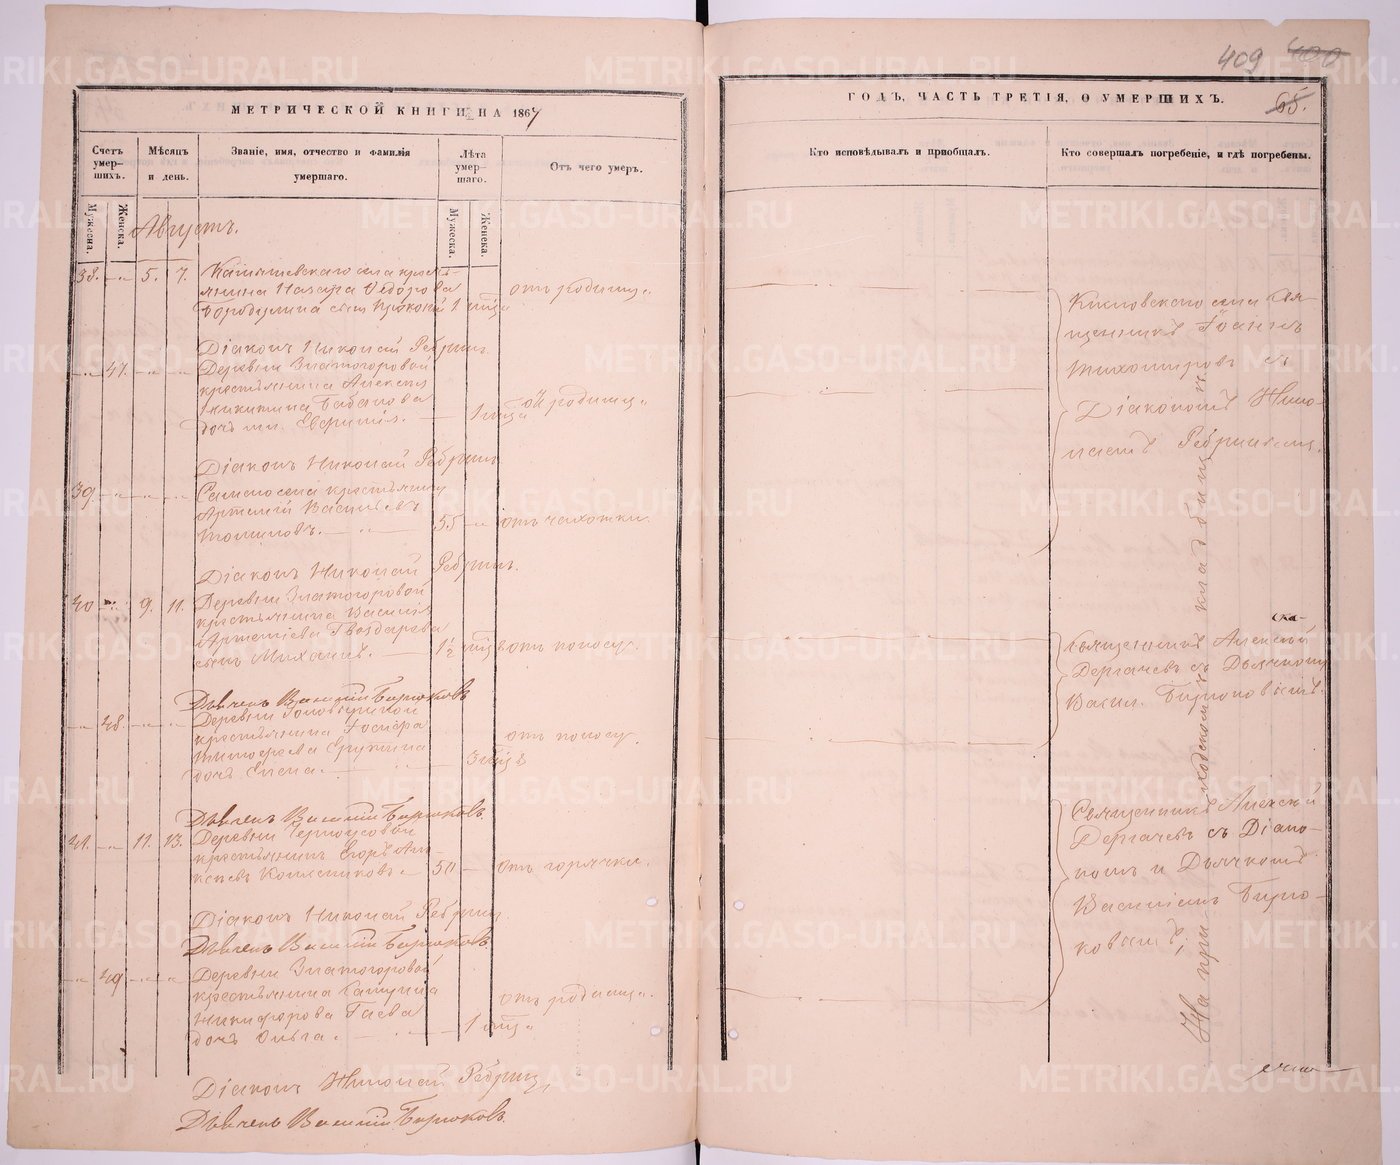 МЕТРИЧЕСКОЙ КНИГИ НА 1867
Счетъ умер-
шихъ.
Мужеска.
Женска.
Мѣсяцъ
и день.
Званіе, имя, отчество и фамилія
умершаго.
Лѣта
умер-
шаго.
Мужеска.
Женска.
Отъ чего умеръ.
Августъ.
38. 5. 7.
села кресть-
янина Назара Ѳедорова
Бородулина сынъ Прокопій 1 мѣсяца
отъ родимца.
Діаконъ Николай Ребринъ.
47.
Деревни Златогоровой
крестьянина Алексея
Никитина Бабанова
дочь Евфимія. 1 мѣсяца
отъ родимца.
Діаконъ Николай Ребринъ.
39.
Сего села крестьянинъ
Артемій Васильевъ
55 отъ чахотки.
Діаконъ Николай Ребринъ.
40. 9. 11.
Деревни Златогоровой
крестьянина Василія
Артемьева Гвоздарева
сынъ Михаилъ. 1½ отъ поносу.
Дьячекъ Василій Бирюковъ
48.
Деревни
крестьянина Іосифа
Тимофеева
дочь Елена. 3
отъ поносу.
Дьячекъ Василій Бирюковъ.
41. 11. 13.
Деревни Черноусовой
крестьянинъ Егоръ Але-
ксеевъ Колесниковъ. 50 отъ горячки.
Діаконъ Николай Ребринъ.
Дьячекъ Василій Бирюковъ.
49.
Деревни Златогоровой
крестьянина
Никифорова Гаева
дочь Ольга. 1 мѣсяца
отъ родимца.
Діаконъ Николай Ребринъ,
Дьячекъ Василій Бирюковъ.
409 400
65.
ГОДЪ, ЧАСТЬ ТРЕТІЯ, О УМЕРШИХЪ.
Кто исповѣдывалъ и пріобщалъ.
Кто совершалъ погребеніе, и гдѣ погребены.
села Свя-
щенникъ Іоаннъ
Тихомировъ съ
Діакономъ Нико-
лаемъ Ребринымъ.
Священникъ Алексѣй
Дергачевъ съ Дьячкомъ
Васил. Бирюковымъ.
Священникъ Алексѣй
Дергачевъ съ Діако-
номъ и Дьячкомъ
Василіемъ Бирю-
ковымъ,
На приходскомъ кладбищѣ
METRIKI.GASO-URAL.RU